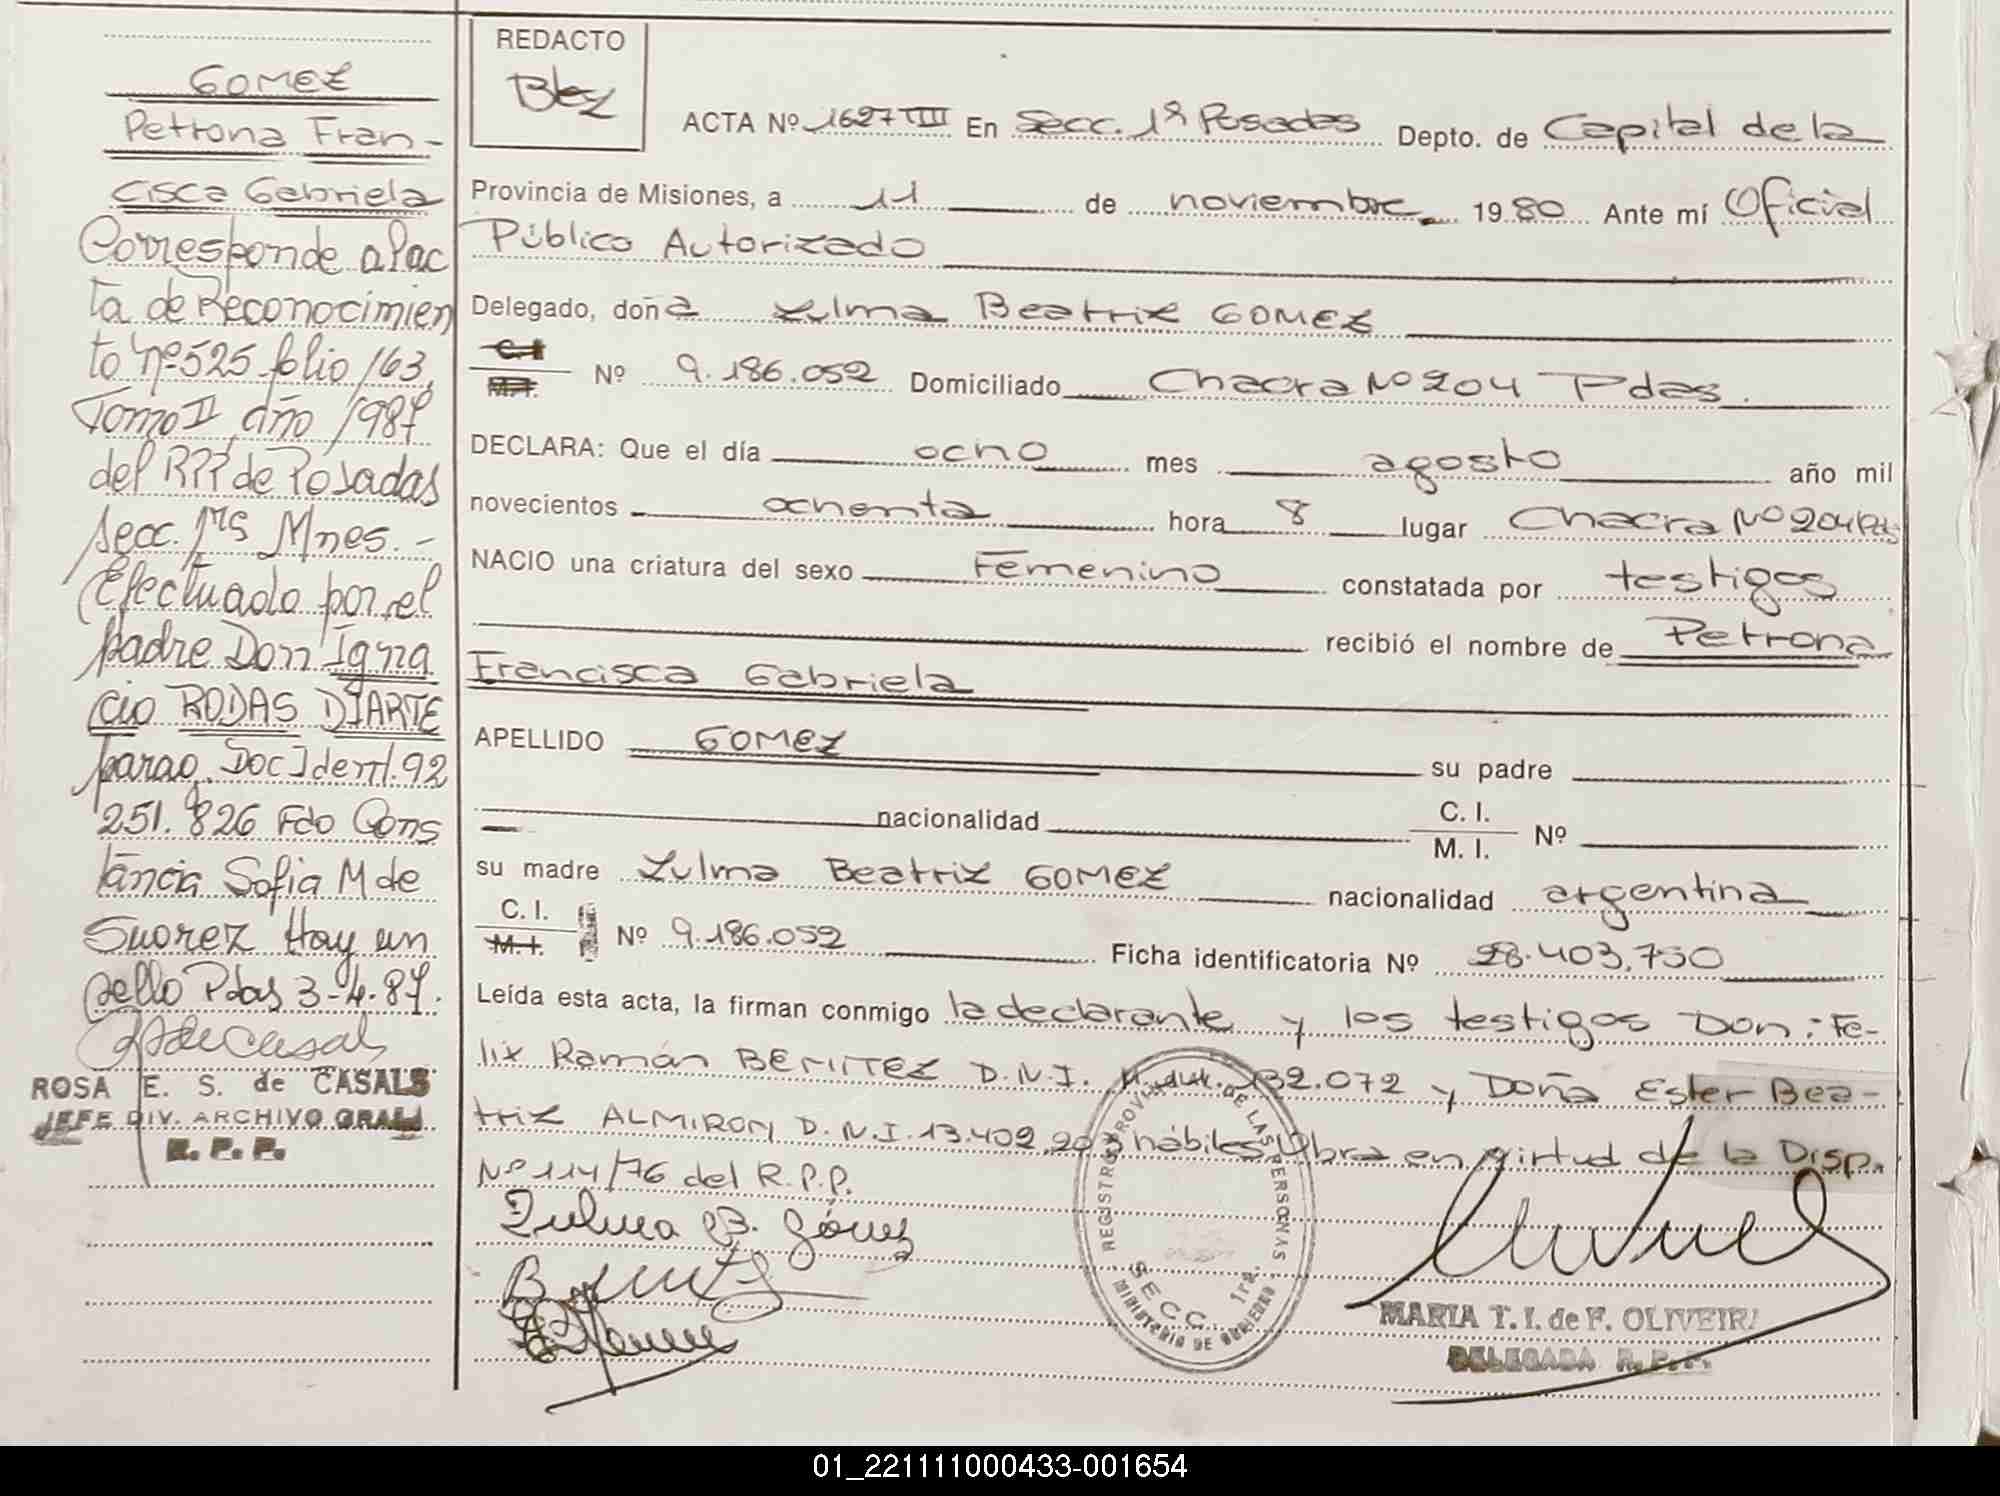 GOMEZ
Petrona Fran-
cisca Gabriela
Corresponde al ac
ta de Reconocimien
to nº 525 folio 163,
Tomo II año 1987
del RPP de Posadas
secc. 1ra Mnes. -
Efectuado por el
padre Don Igna
cio RODAS DIARTE
parag. Doc Ident. 92
251.826 Fdo Cons
tancia Sofia M de
Suarez Hay un
sello Pdas 3-4-87.
ROSA E. S. de CASALS
JEFE DIV. ARCHIVO GRAL
R. P. P.
REDACTO
Blez
ACTA Nº 1627 TIII En Secc. 1ª Posadas Depto. de Capital de la
Provincia de Misiones, a 11 de noviembre 1980 Ante mí Oficial
Público Autorizado
Delegado, doña Zulma Beatriz GOMEZ
C.I
M.I. Nº 9.186.052 Domiciliado Chacra Nº 204 Pdas.
DECLARA: Que el día ocho mes agosto año mil
novecientos ochenta hora 8 lugar Chacra Nº 204 Pds
NACIO una criatura del sexo Femenino constatada por testigos
recibió el nombre de Petrona
Francisca Gabriela
APELLIDO GOMEZ su padre
nacionalidad C. I.
M. I. Nº
su madre Zulma Beatriz GOMEZ nacionalidad argentina
C. I.
M.I. Nº 9.186.052 Ficha identificatoria Nº 28.403.750
Leída esta acta, la firman conmigo la declarante y los testigos Don: Fe-
lix Ramón BENITEZ D.N.I. 132.072 y Doña Ester Bea-
triz ALMIRON D.N.I. 13.402.203 hábiles Obra en virtud de la Disp.
Nº 114/76 del R.P.P.
Zulma B. Gómez
REGISTRO PROVINCIAL DE LAS PERSONAS
SECC. 1ra.
MINISTERIO DE GOBIERNO
MARIA T. I. de F. OLIVEIRA
DELEGADA R. P. P.
01_221111000433-001654